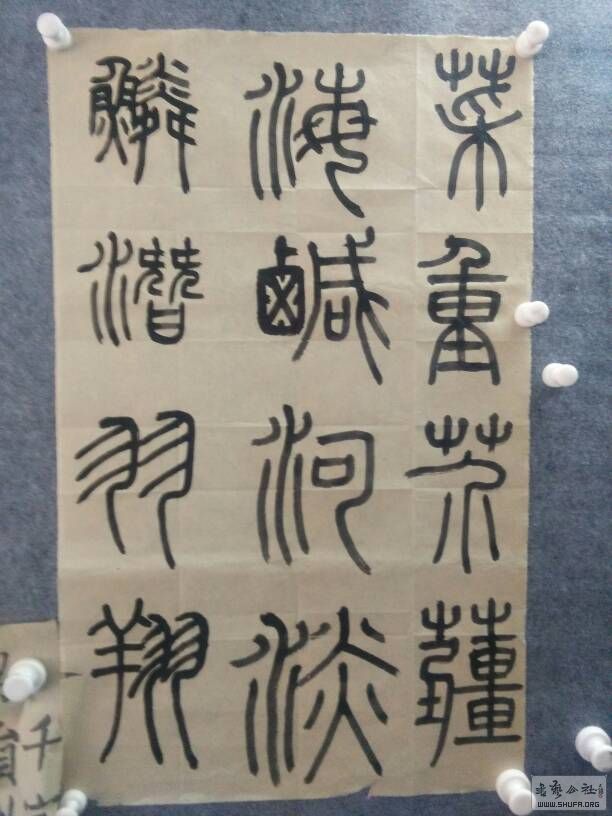 菜重芥薑
海鹹河淡
鱗潛羽翔
千字
WWW.SHUFA.ORG